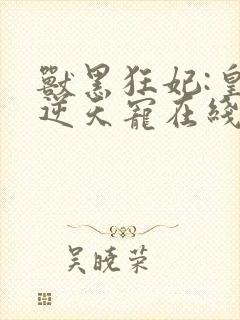 獸黑狂妃:皇
逆天寵在綫
吴晓荣